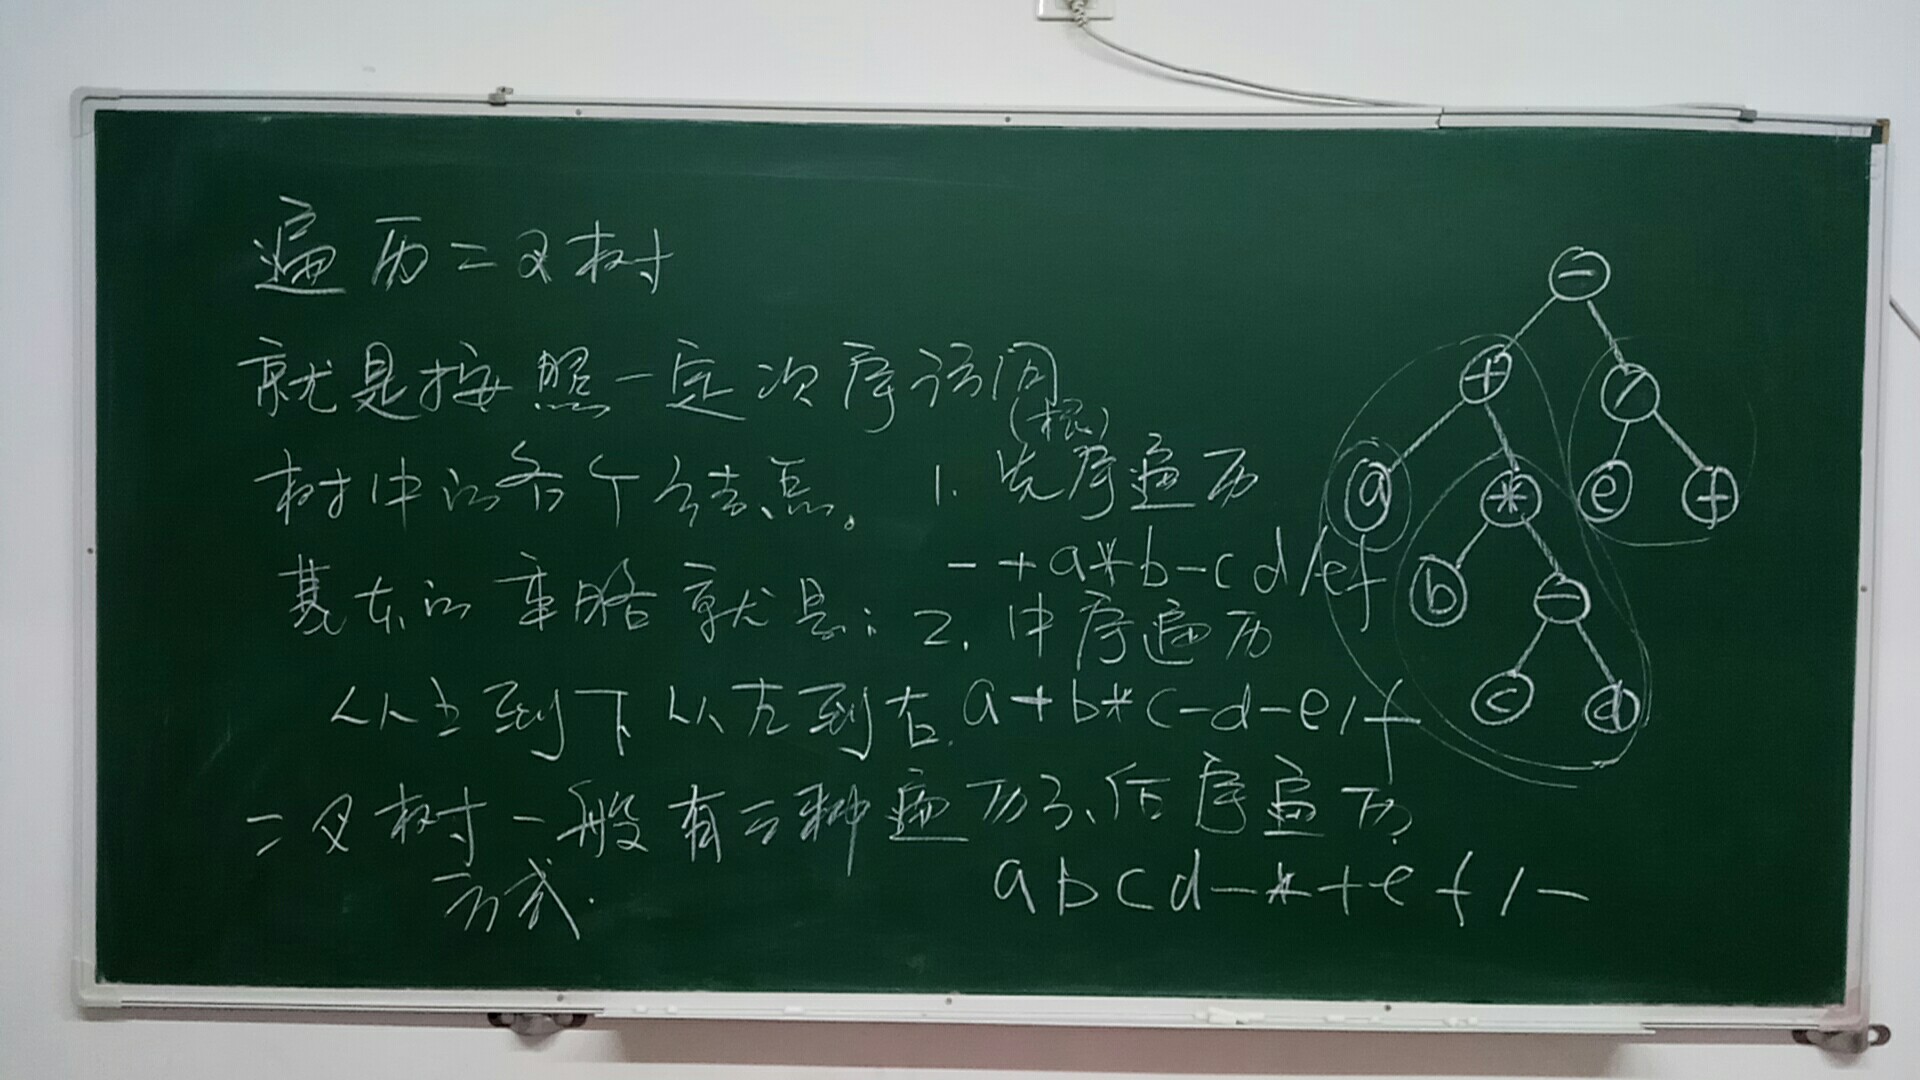 遍历二叉树
就是按照一定次序访问
树中的各个结点。
基本的策略就是：
从上到下从左到右.
二叉树一般有三种遍历
方式.
(根)
1. 先序遍历
-+a*b-cd/ef
2. 中序遍历
a+b*c-d-e/f
3、后序遍历
abcd-*+ef/-
-
+ /
a * e f
b -
c d